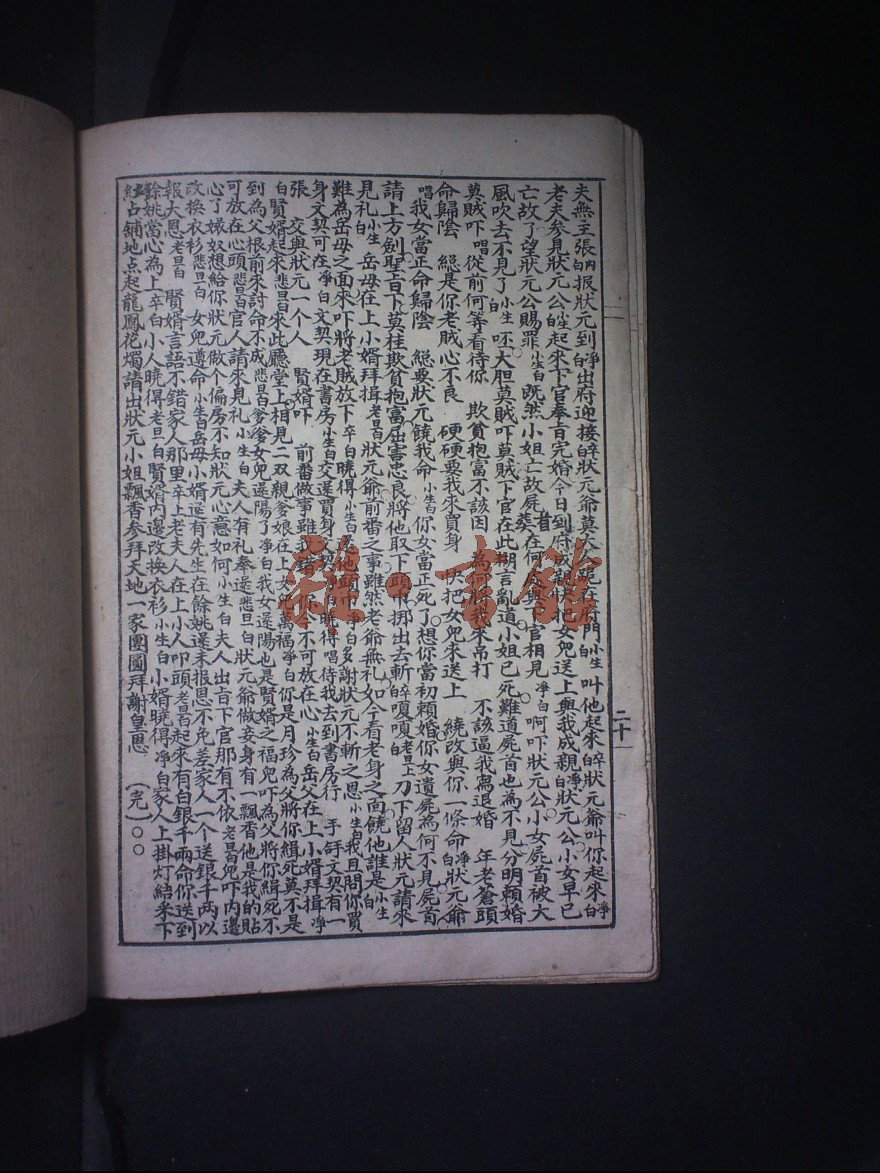 夫無主張內白报狀元到淨白出府迎接卒白狀元爺莫大現在府門小生白叫他起來卒白狀元爺叫你起來淨白
老夫参見狀元公小生白起來下官奉旨完婚今日到府把女兒送上與我成親淨白狀元公小女早已
亡故了望狀元公賜罪小生白既然小姐亡故屍首葬在何處與下官相見淨白啊吓狀元公小女屍首被大
風吹去不見了小生白呸大胆莫賊吓莫賊下官在此胡言亂道小姐已死難道屍首也為不見分明頼婚
莫賊吓唱從前何等看待你 欺貧抱富不該因 為何把我來吊打 不該逼我寫退婚 年老蒼頭
命歸陰 総是你老賊心不良 硬硬要我來賣身 快把女兒來送上 繞改與你一條命淨白狀元爺
唱我女當正命歸陰 総要狀元饒我命小生白你女當正死了想你當初頼婚你女遺屍為何不見屍首
請上方劍聖旨下莫桂欺貧抱富屈害忠良將他取下頭帶挪出去斬卒白嗄嗄老旦上白刀下留人狀元請來
見礼小生白岳母在上小婿拜揖老旦白狀元爺前番之事雖然老爺無礼如今看老身之面饒他誰是小生白
難為岳母之面來吓將老賊放下卒白曉得淨白多謝狀元不斬之恩小生白我且問你賈
身文契可在淨白文契現在書房小生白交還賈身文契淨白曉得唱待我去到書房行 手舒文契有一
張 交與狀元一个人 賢婿吓 前番做事雖我錯 你不可放在心小生白岳父在上小婿拜揖淨
白賢婿起來悲旦白來此廳堂上相見二双親爹娘在上女兒萬福淨白你是月珍為父將你緝死莫不是
到為父根前來討命不成悲旦白爹爹女兒還陽了淨白我女還陽也是賢婿之福兒吓為父將你緝死不
可放在心頭悲旦白官人請來見礼小生白夫人有礼奉還悲旦白狀元爺做妾身有一飄香他是我的貼
心了婊奴想給你狀元做个偏房不知狀元心意如何小生白夫人出言下官那有不依老旦白兒吓内邊
改換衣衫悲旦白女兒遵命小生白岳母小婿還有先生在餘姚還未报恩不免差家人一个送銀千两以
報大恩老旦白賢婿言語不錯家人那里卒上老夫人在上小人叩頭老旦白起來有白銀千兩命你送到
餘姚當心為上卒白小人曉得老旦白賢婿内邊改換衣衫小生白小婿曉得淨白家人上掛灯結彩下
紅占舖地点起龍鳳花燭請出狀元小姐飄香参拜天地一家團圓拜謝皇恩 (完)〇〇
二十
雜·書館